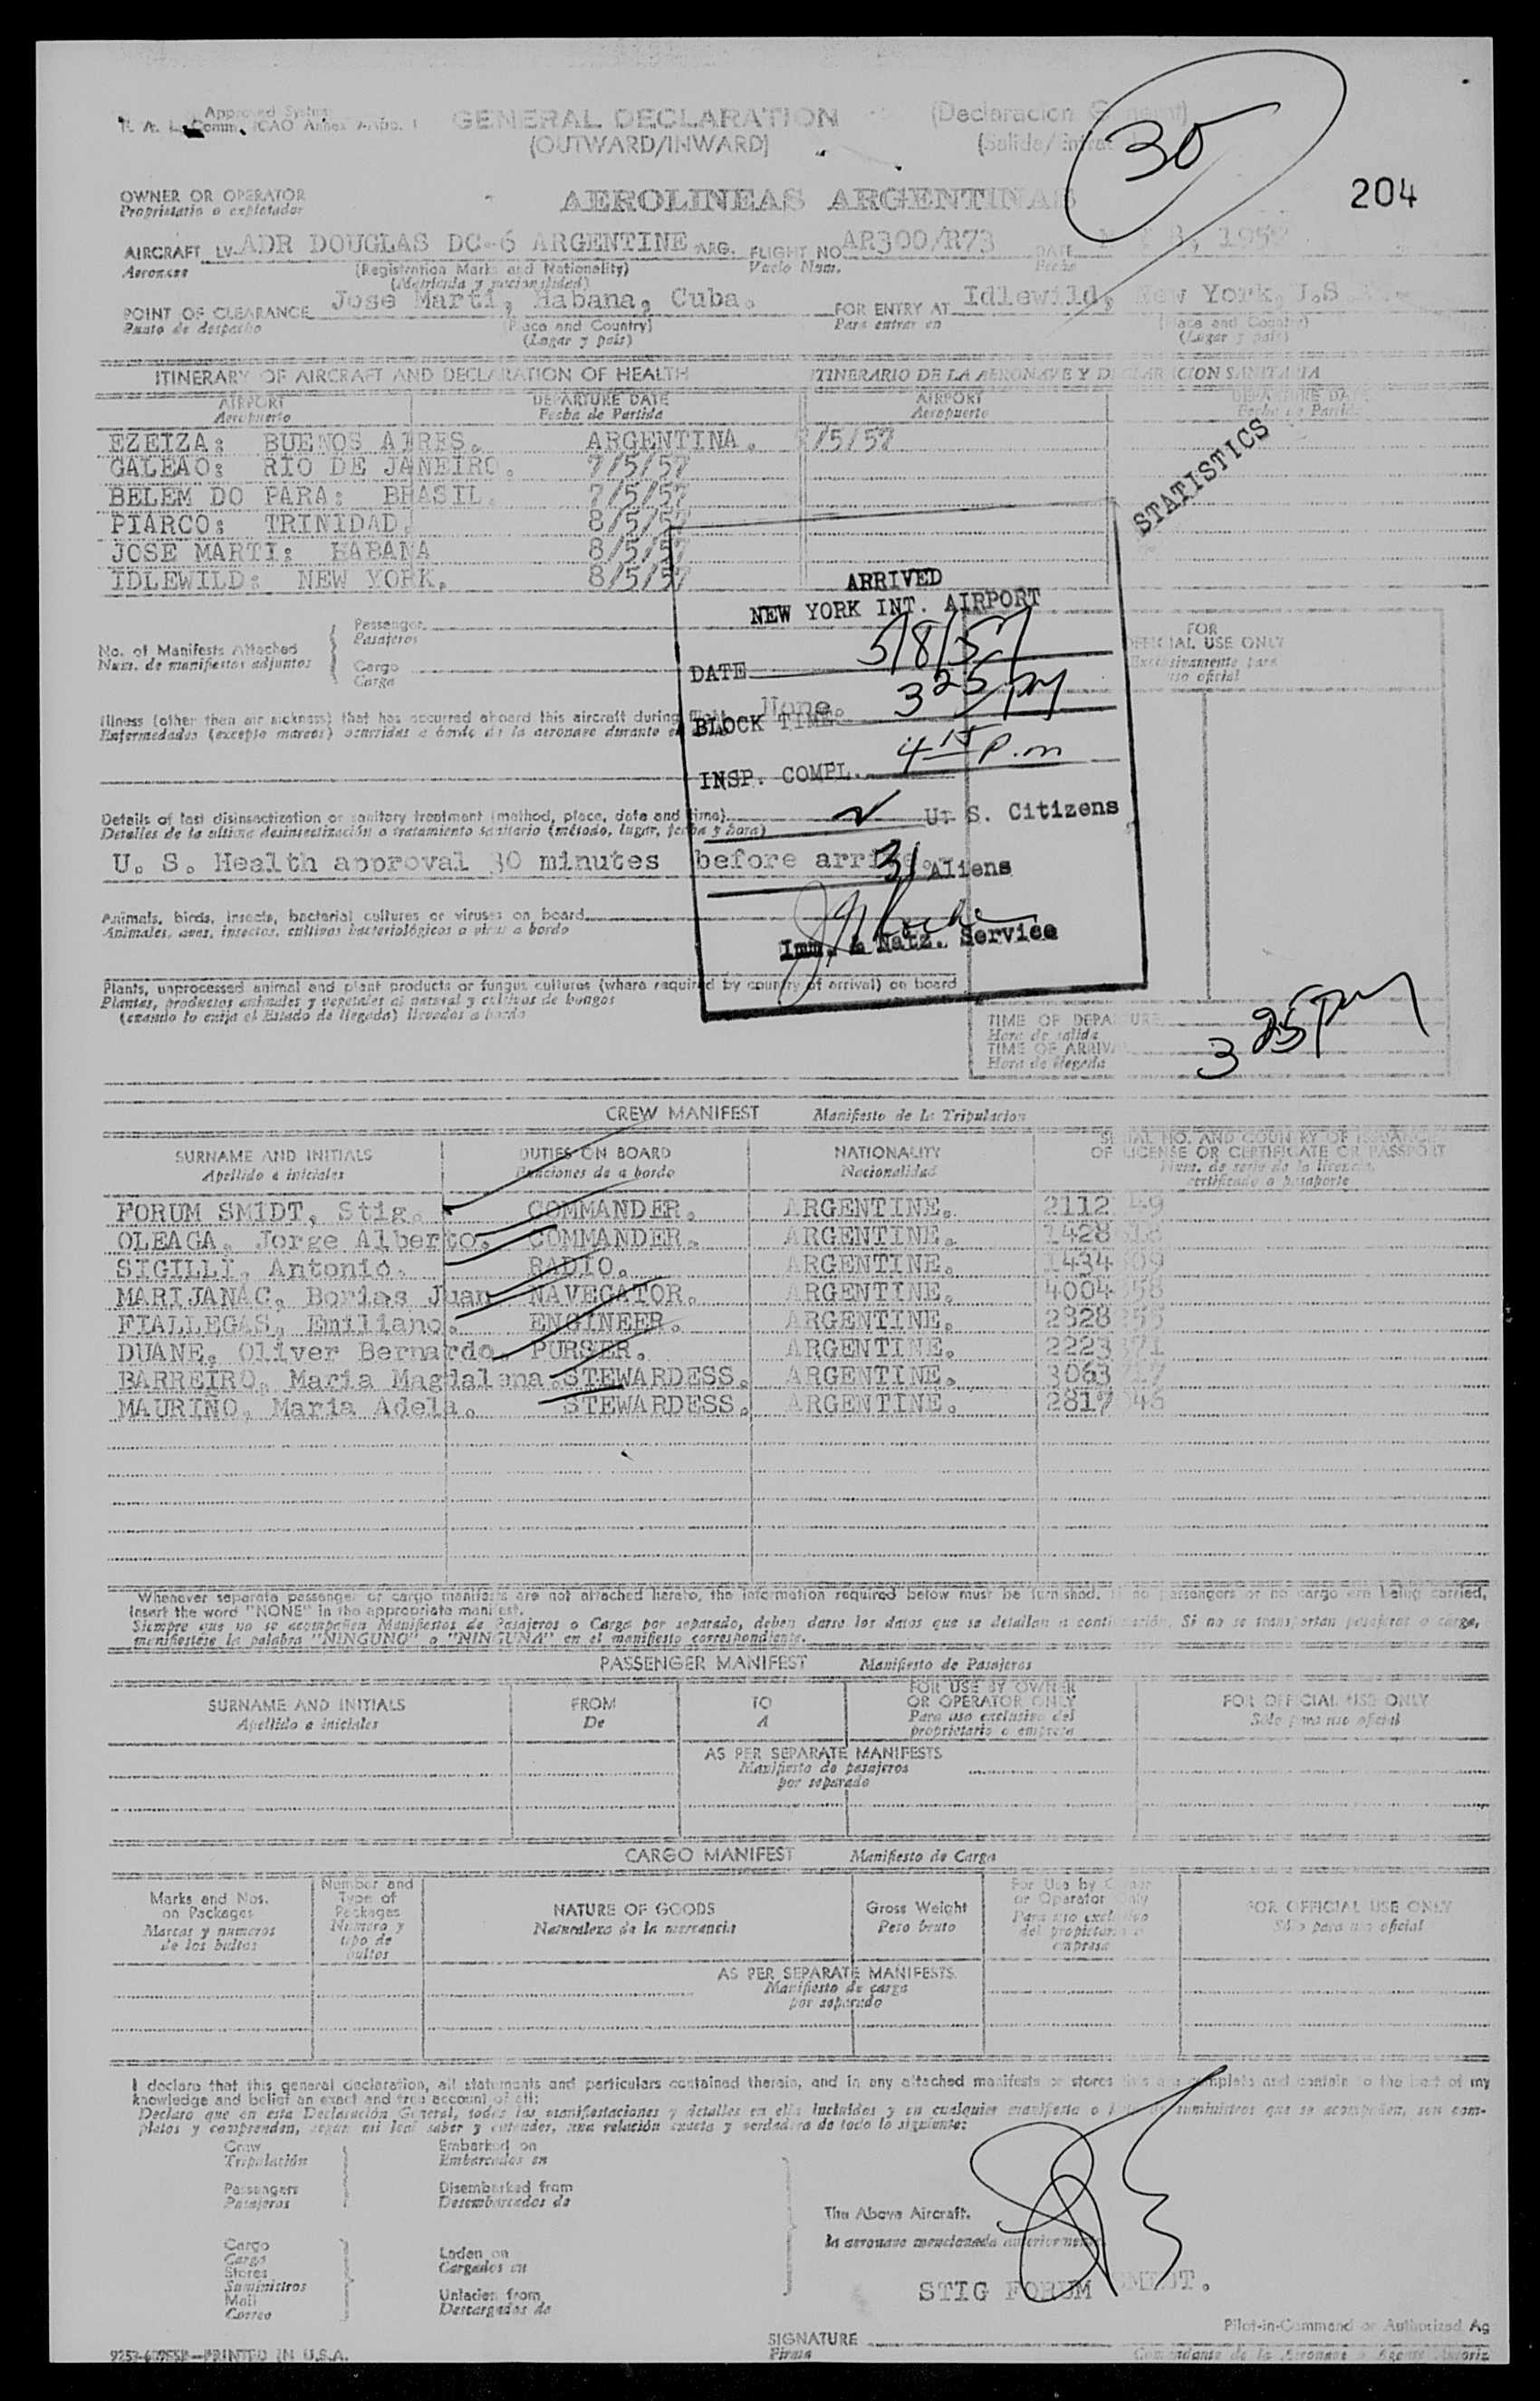 Approved System
GENERAL DECLARATION
(OUTWARD/INWARD)
(Declaracion
(Salida/
30
204
OWNER OR OPERATOR
Propietario o explotador
AEROLINEAS ARGENTINAS
AIRCRAFT LV-ADR DOUGLAS DC-6 ARGENTINE ARG. FLIGHT NO AR300/R73 DATE 8, 195
Aeronave
(Registration Marks and Nationality)
Vuelo Num.
Fecha
(Matricula y nacionalidad)
POINT OF CLEARANCE Jose Marti, Habana, Cuba. FOR ENTRY AT Idlewild, New York, U.S
Punto de despacho
(Place and Country)
(Lugar y pais)
Para entrar en
(Place and Country)
(Lugar y pais)
ITINERARY OF AIRCRAFT AND DECLARATION OF HEALTH
ITINERARIO DE LA AERONAVE Y DECLARACION SANITARIA
AIRPORT DEPARTURE DATE AIRPORT DEPARTURE DATE
Aeropuerto Fecha de Partida Aeropuerto Fecha de Partida
EZEIZA: BUENOS AIRES. ARGENTINA. /5/57
GALEAO: RIO DE JANEIRO. 7/5/57
BELEM DO PARA: BRASIL. 7/5/57
PIARCO: TRINIDAD. 8/5/57
JOSE MARTI: HABANA 8/5/57
IDLEWILD: NEW YORK. 8/5/57
STATISTICS
ARRIVED
NEW YORK INT. AIRPORT
DATE 5/8/57
BLOCK TIME 3 25 PM
INSP. COMPL. 4 15 P.m
U. S. Citizens
31 Aliens
Imm. & Natz. Service
No. of Manifests Attached
Num. de manifiestos adjuntos
Passenger
Pasajeros
Cargo
Carga
FOR
OFFICIAL USE ONLY
Exclusivamente para
uso oficial
Illness (other than air sickness) that has occurred aboard this aircraft during None
Enfermedades (excepto mareos) ocurridas a bordo de la aeronave durante
Details of last disinsectization or sanitary treatment (method, place, date and time)
Detalles de la ultima desinsectización o tratamiento sanitario (método, lugar, fecha y hora)
U. S. Health approval 30 minutes before
Animals, birds, insects, bacterial cultures or viruses on board
Animales, aves, insectos, cultivos bacteriológicos o virus a bordo
Plants, unprocessed animal and plant products or fungus cultures (where required by country of arrival) on board
Plantas, productos animales y vegetales al natural y cultivos de hongos
(cuando lo exija el Estado de llegada) llevados a bordo
TIME OF DEPARTURE
Hora de salida
TIME OF ARRIVAL
Hora de llegada
3 25 PM
CREW MANIFEST Manifiesto de la Tripulacion
SURNAME AND INITIALS DUTIES ON BOARD NATIONALITY SERIAL NO. AND COUNTRY OF ISSUANCE
OF LICENSE OR CERTIFICATE OR PASSPORT
Apellido e iniciales Funciones de a bordo Nacionalidad Num. de serie de la licencia,
certificado o pasaporte
FORUM SMIDT, Stig. COMMANDER. ARGENTINE. 2112
OLEAGA, Jorge Alberto. COMMANDER. ARGENTINE. 1428
SIGILLI, Antonio. RADIO. ARGENTINE. 1434
MARIJANAC, Borias Juan NAVEGATOR. ARGENTINE. 4004
FIALLEGAS, Emiliano. ENGINEER. ARGENTINE. 2828
DUANE, Oliver Bernardo. PURSER. ARGENTINE. 2223
BARREIRO, Maria Magdalena. STEWARDESS. ARGENTINE. 3063
MAURIÑO, Maria Adela. STEWARDESS. ARGENTINE. 2817
Whenever separate passenger or cargo manifests are not attached hereto, the information required below must be furnished. If no passengers or no cargo are being carried,
insert the word "NONE" in the appropriate manifest.
Siempre que no se acompañen Manifiestos de Pasajeros o Carga por separado, deben darse los datos que se detallan a continuación. Si no se transportan pasajeros o carga,
manifiestese la palabra "NINGUNO" o "NINGUNA" en el manifiesto correspondiente.
PASSENGER MANIFEST Manifiesto de Pasajeros
SURNAME AND INITIALS FROM TO FOR USE BY OWNER
OR OPERATOR ONLY FOR OFFICIAL USE ONLY
Apellido e iniciales De A Para uso exclusivo del
propietario o empresa Sólo para uso oficial
AS PER SEPARATE MANIFESTS
Manifiesto de pasajeros
por separado
CARGO MANIFEST Manifiesto de Carga
Marks and Nos.
on Packages
Marcas y numeros
de los bultos
Number and
Type of
Packages
Número y
tipo de
bultos
NATURE OF GOODS
Naturaleza de la mercancia
Gross Weight
Peso bruto
For Use by Owner
or Operator Only
Para uso exclusivo
del propietario o
empresa
FOR OFFICIAL USE ONLY
Sólo para uso oficial
AS PER SEPARATE MANIFESTS
Manifiesto de carga
por separado
I declare that this general declaration, all statements and particulars contained therein, and in any attached manifests or stores lists are complete and contain to the best of my
knowledge and belief an exact and true account of all:
Declaro que en esta Declaración General, todas las manifestaciones y detalles en ella incluidos y en cualquier manifiesto o lista de suministros que se acompañen, son com-
pletos y comprenden, según mi leal saber y entender, una relación exacta y verdadera de todo lo siguiente:
Crew
Tripulación
Passengers
Pasajeros
Embarked on
Embarcados en
Disembarked from
Desembarcados de
Cargo
Carga
Stores
Suministros
Mail
Correo
Laden on
Cargados en
Unladen from
Descargados de
The Above Aircraft.
la aeronave mencionada anteriormente
STIG FORUM SMIDT.
Pilot-in-Command or Authorized Ag
SIGNATURE
Firma
Comandante de la Aeronave o Agente Autoriz
PRINTED IN U.S.A.